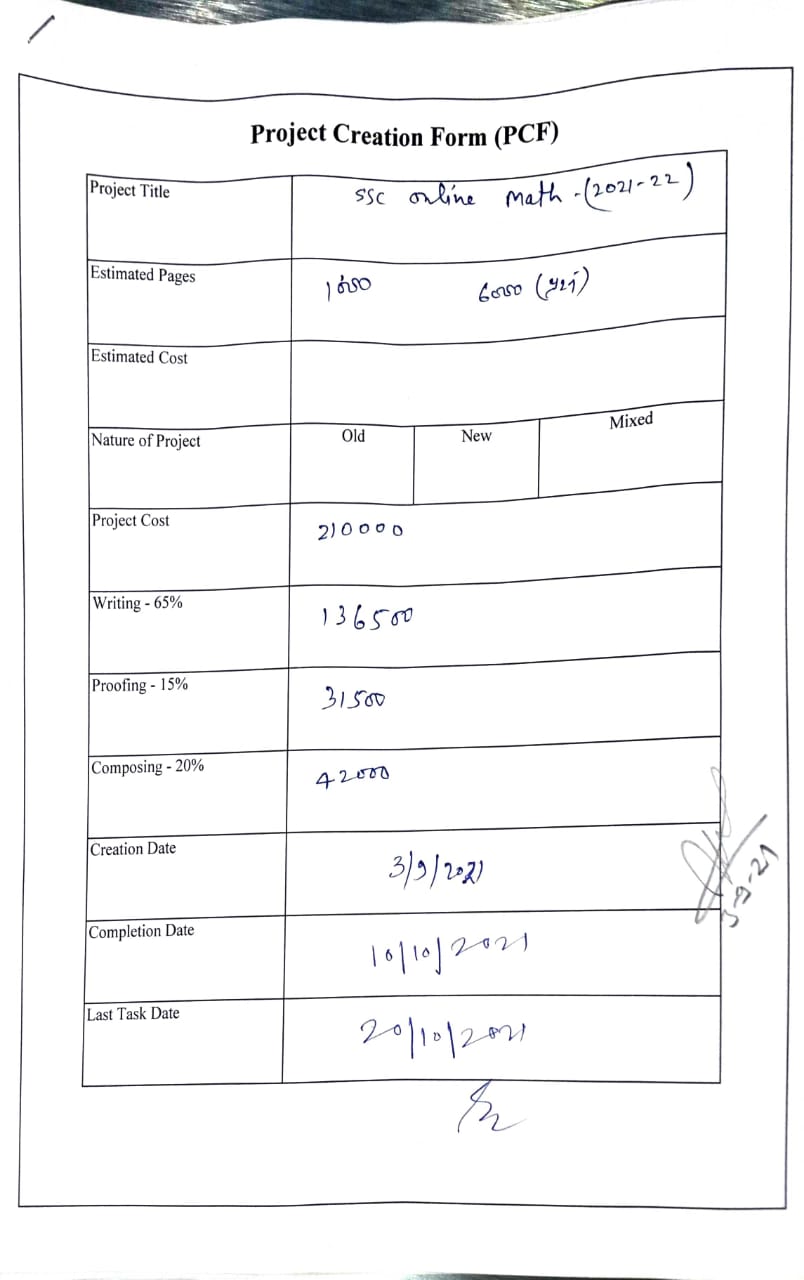 Project Creation Form (PCF)
Project Title SSC online math -(2021-22)
Estimated Pages 6000
Estimated Cost
Nature of Project Old New Mixed
Project Cost 210000
Writing - 65% 136500
Proofing - 15% 31500
Composing - 20% 42000
Creation Date 3/9/2021
Completion Date 10/10/2021
Last Task Date 20/10/2021
3-9-21